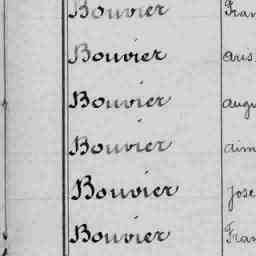 Bouvier Fran
Bouvier aris
Bouvier augu
Bouvier aim
Bouvier jose
Bouvier Fran